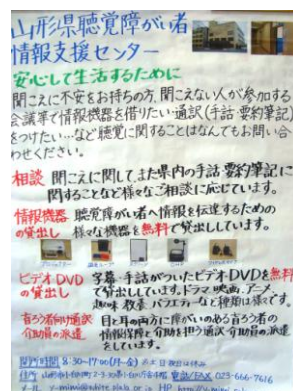 山形県聴覚障がい者
情報支援センター
安心して生活するために
聞こえに不安をお持ちの方、聞こえない人が参加する
会議等で情報機器を借りたい・通訳(手話・要約筆記)
をつけたい…など聴覚に関することはなんでもお問い合
わせください。
相談 聞こえに関して、また県内の手話・要約筆記に
関することなど様々なご相談に応じています。
情報機器 聴覚障がい者へ情報を伝達するための
の貸出し 様々な機器を無料で貸出ししています。
ビデオ・DVD 字幕・手話がついたビデオ・DVDを無料
の貸出し で貸出ししています。ドラマ、映画、アニメ、
趣味、教養、バラエティーなど種類は様々です。
盲ろう者向け通訳・ 目と耳の両方に障がいのある盲ろう者の
介助員の派遣 情報保障と介助を担う通訳・介助員の派遣
をしています。
開所時間 8:30~17:00(月~金)
住所 山形市 電話/FAX 023-666-7616